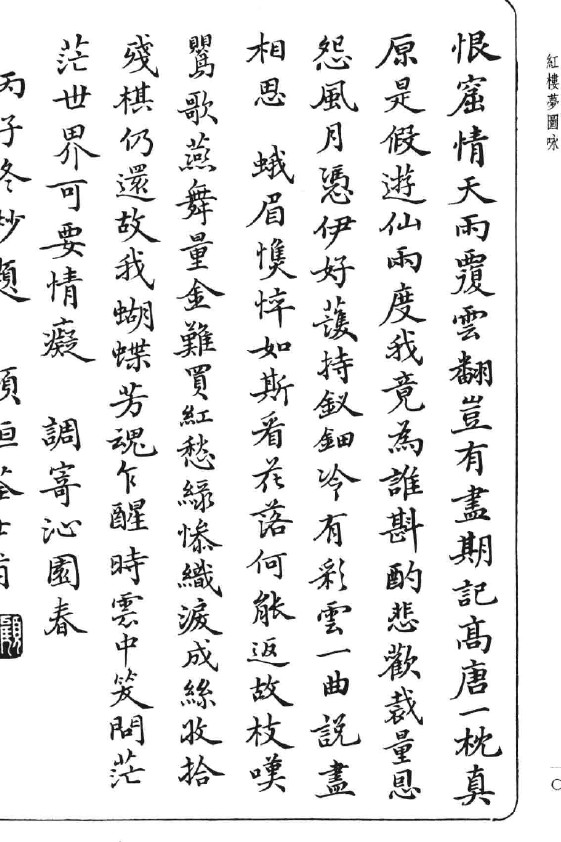 紅樓夢圖咏
恨窟情天雨覆雲翻豈有盡期記高唐一枕真
原是假遊仙兩度我竟為誰斟酌悲歡裁量恩
怨風月憑伊好護持釵鈿冷有彩雲一曲說盡
相思 蛾眉憔悴如斯看花落何能返故枝嘆
鶯歌燕舞量金難買紅愁綠慘織淚成絲收拾
殘棋仍還故我蝴蝶芳魂乍醒時雲中笑問茫
茫世界可要情癡 調寄沁園春
丙子冬杪題
一〇